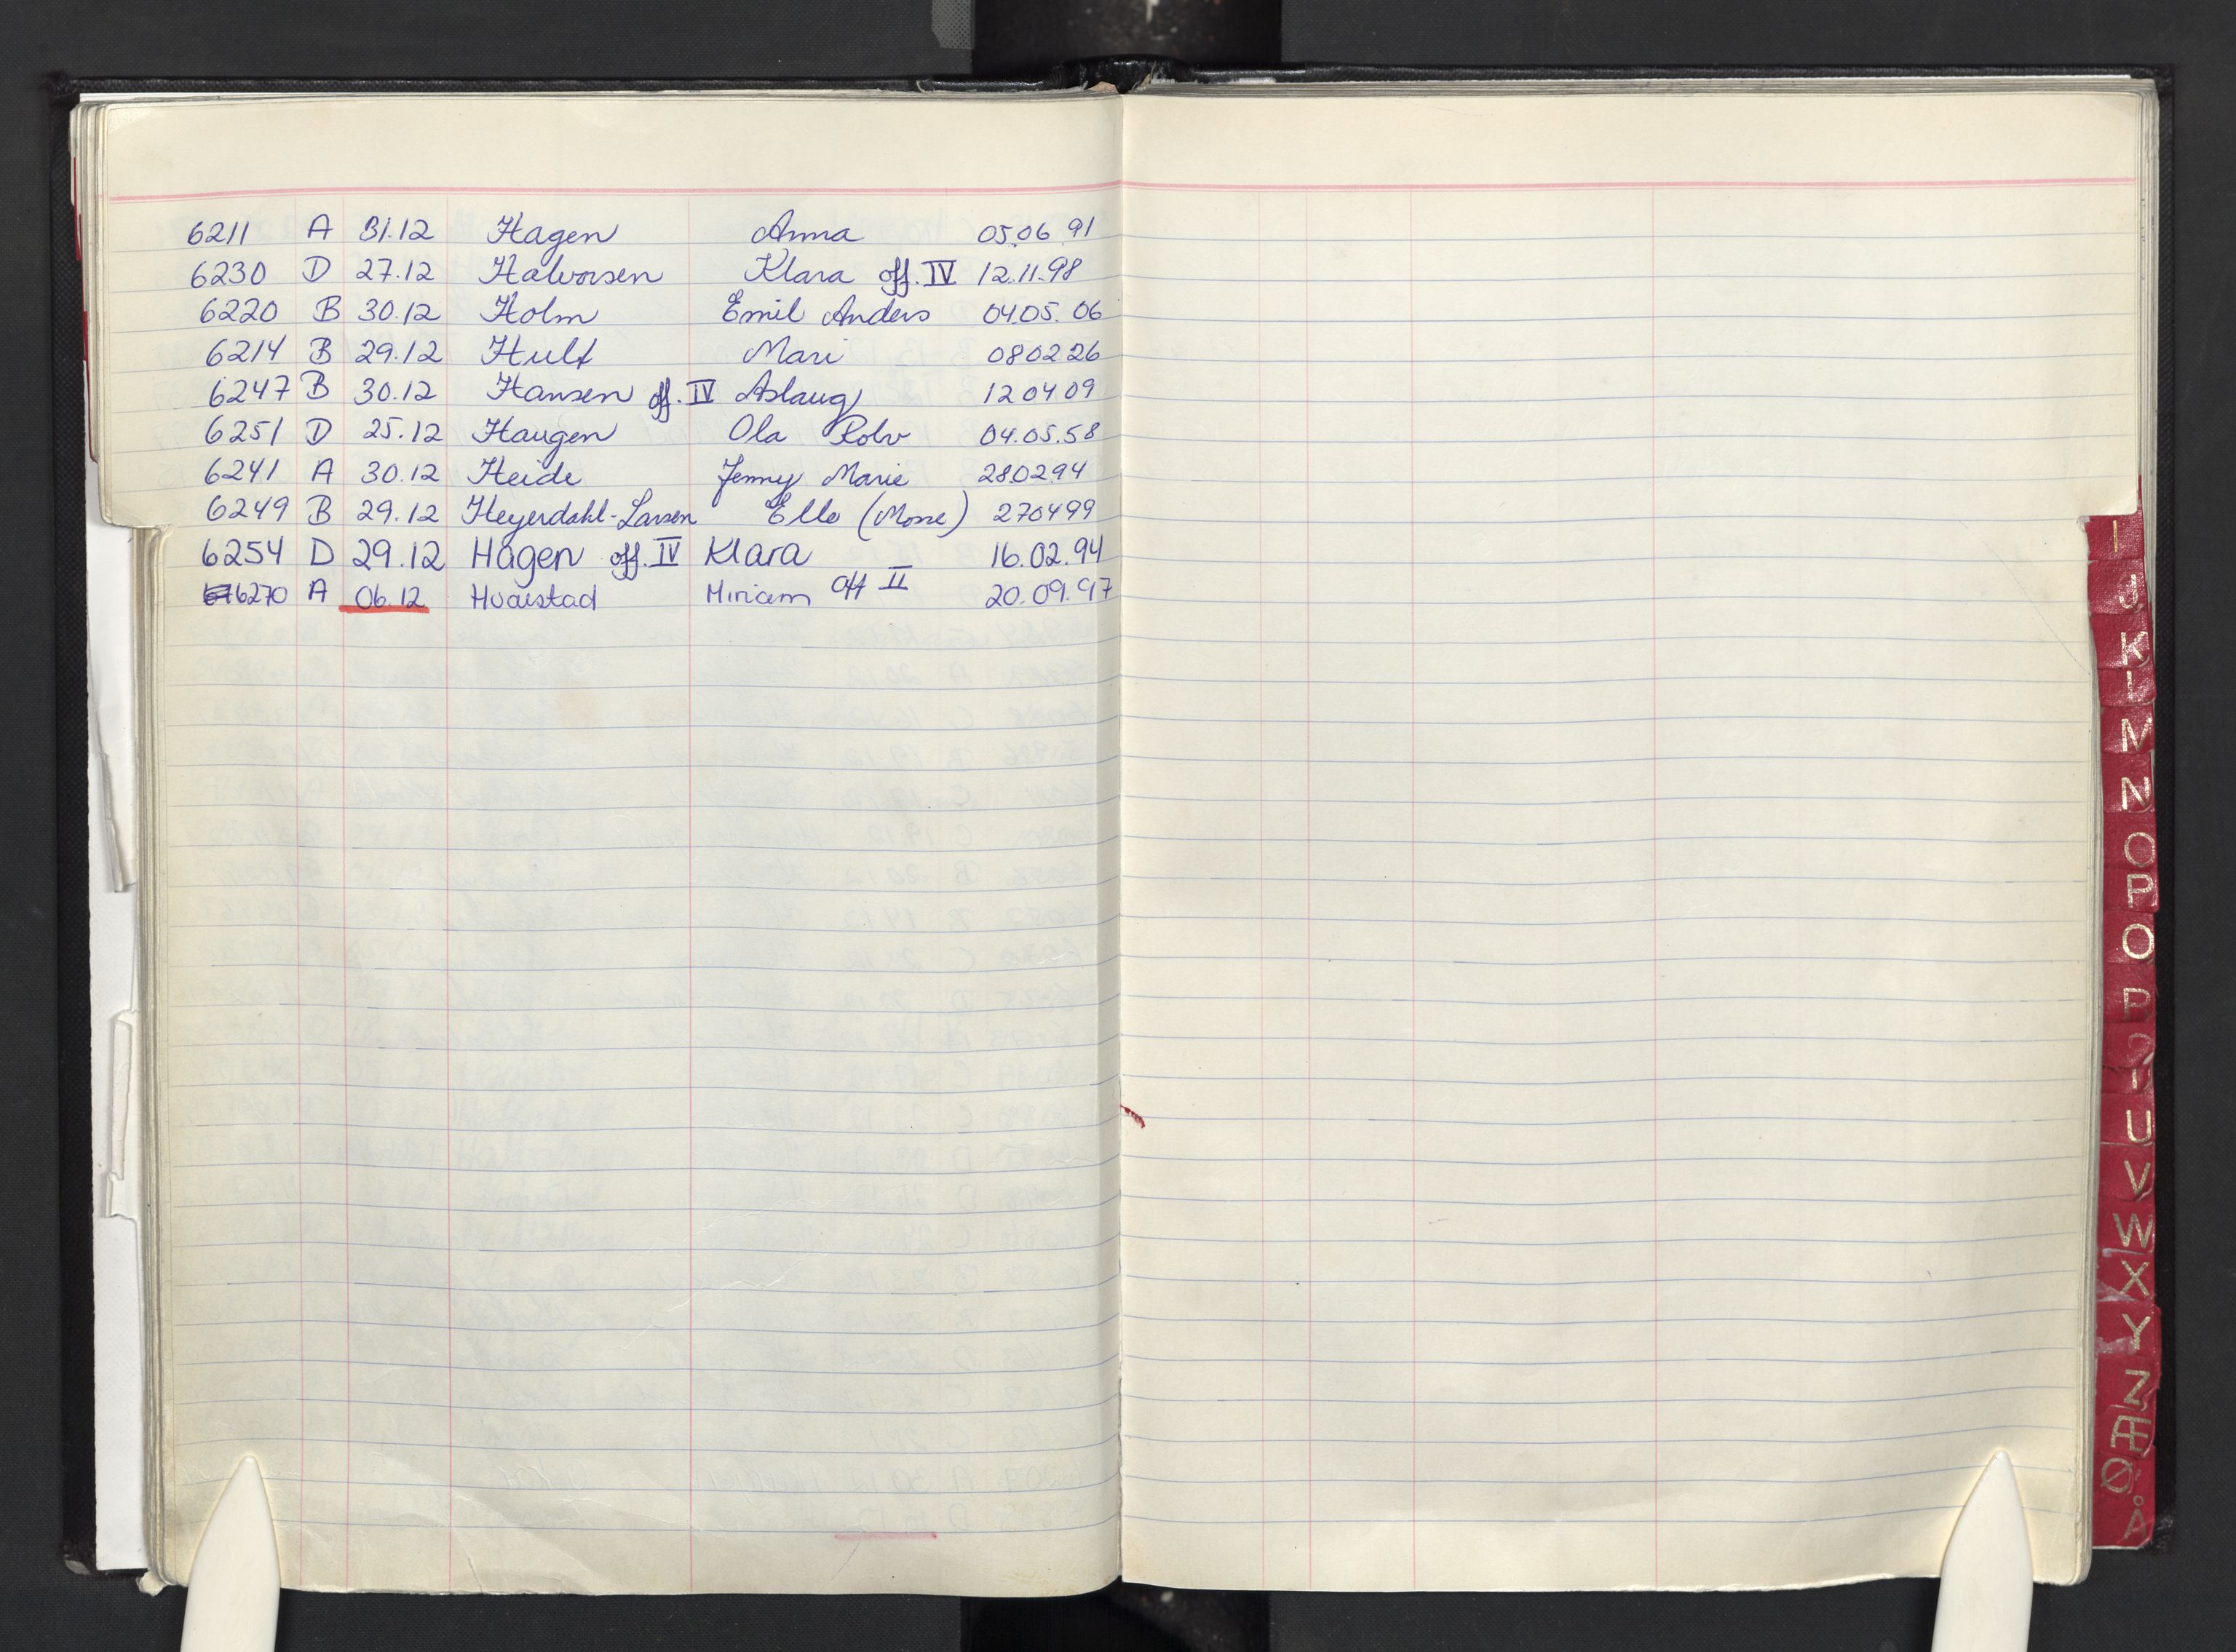 6211 A 31.12 Hagen Anna 05.06 91
6230 D 27.12 Halvorsen Klara off. IV 12.11.98
6220 B 30.12 Holm Emil Anders 04.05. 06
6214 B 29.12 Hult Mari 080226
6247 B 30.12 Hansen off. IV Aslaug 120409
6251 D 25.12 Haugen Ola Rolv 04.05.58
6241 A 30.12 Heide Jenny Marie 280294
6249 B 29.12 Heyerdahl-Larsen (Mosse) 270499
6254 D 29.12 Hagen off. IV Klara 16.02.94
6270 A 06.12 Miriam Off II 20.09.97
I
J
K
L
M
N
O
P
Q
R
S
T
U
V
W
X
Y
Z
Æ
Ø
Å